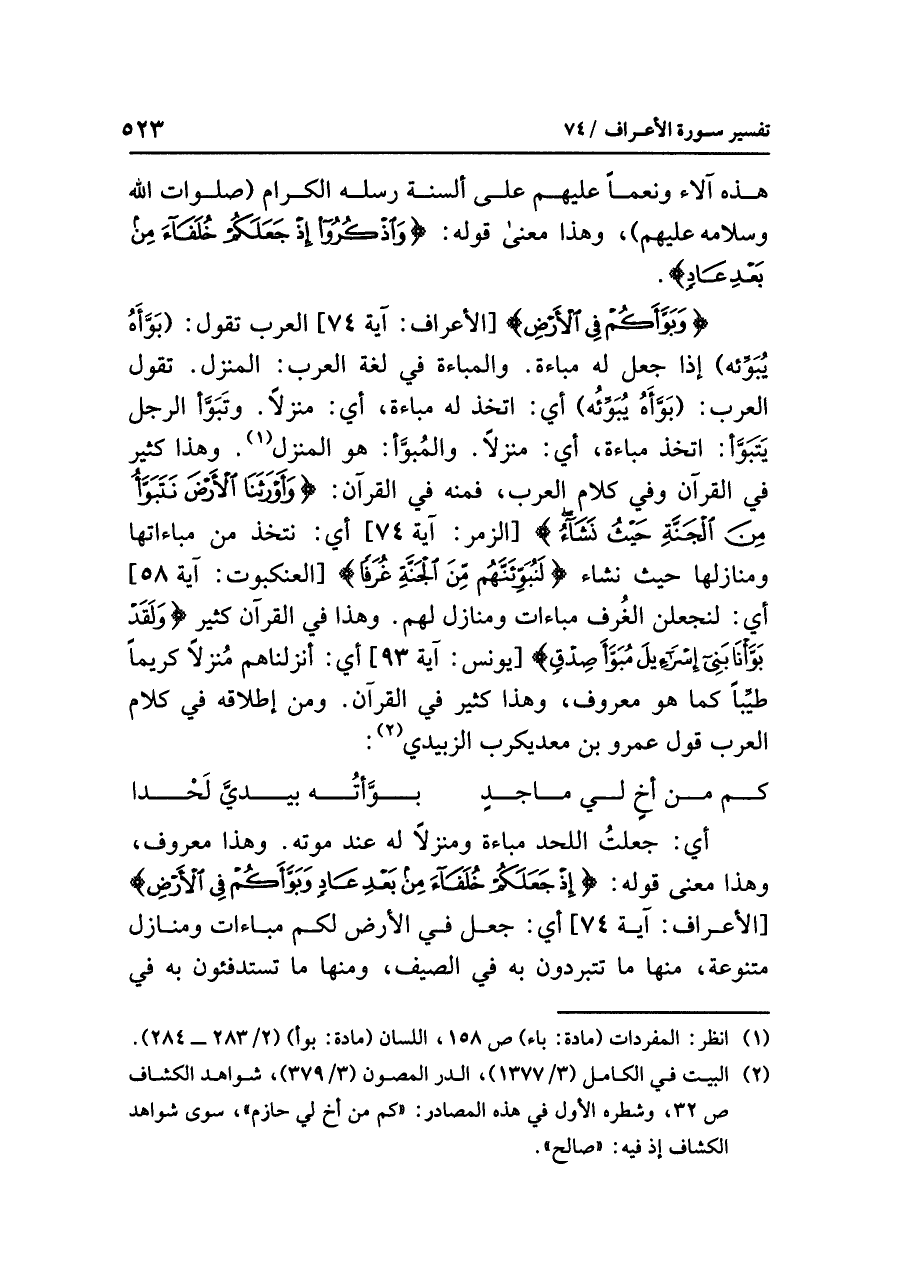 تفسير سورة الأعراف / ٧٤ ٥٢٣
هذه آلاء ونعماً عليهم على ألسنة رسله الكرام (صلوات الله
وسلامه عليهم)، وهذا معنىٰ قوله: ﴿وَٱذْكُرُوٓا۟ إِذْ جَعَلَكُمْ خُلَفَآءَ مِنۢ
بَعْدِ عَادٍ﴾.
﴿وَبَوَّأَكُمْ فِى ٱلْأَرْضِ﴾ [الأعراف: آية ٧٤] العرب تقول: (بَوَّأَهُ
يُبَوِّئه) إذا جعل له مباءة. والمباءة في لغة العرب: المنزل. تقول
العرب: (بَوَّأَهُ يُبَوِّئُه) أي: اتخذ له مباءة، أي: منزلاً. وتَبَوَّأ الرجل
يَتَبَوَّأ: اتخذ مباءة، أي: منزلاً. والمُبوَّأ: هو المنزل(١). وهذا كثير
في القرآن وفي كلام العرب، فمنه في القرآن: ﴿وَأَوْرَثَنَا ٱلْأَرْضَ نَتَبَوَّأُ
مِنَ ٱلْجَنَّةِ حَيْثُ نَشَآءُ ۖ﴾ [الزمر: آية ٧٤] أي: نتخذ من مباءاتها
ومنازلها حيث نشاء ﴿لَنُبَوِّئَنَّهُم مِّنَ ٱلْجَنَّةِ غُرَفًا﴾ [العنكبوت: آية ٥٨]
أي: لنجعلن الغُرف مباءات ومنازل لهم. وهذا في القرآن كثير ﴿وَلَقَدْ
بَوَّأْنَا بَنِىٓ إِسْرَٰٓءِيلَ مُبَوَّأَ صِدْقٍ﴾ [يونس: آية ٩٣] أي: أنزلناهم مُنزلاً كريماً
طيِّباً كما هو معروف، وهذا كثير في القرآن. ومن إطلاقه في كلام
العرب قول عمرو بن معديكرب الزبيدي(٢):
كم من أخٍ لي ماجدٍ بوَّأتُه بيديَّ لَحْدا
أي: جعلتُ اللحد مباءة ومنزلاً له عند موته. وهذا معروف،
وهذا معنى قوله: ﴿إِذْ جَعَلَكُمْ خُلَفَآءَ مِنۢ بَعْدِ عَادٍ وَبَوَّأَكُمْ فِى ٱلْأَرْضِ﴾
[الأعراف: آية ٧٤] أي: جعل في الأرض لكم مباءات ومنازل
متنوعة، منها ما تتبردون به في الصيف، ومنها ما تستدفئون به في
(١) انظر: المفردات (مادة: باء) ص ١٥٨، اللسان (مادة: بوأ) (٢/ ٢٨٣ ــ ٢٨٤).
(٢) البيت في الكامل (٣/ ١٣٧٧)، الدر المصون (٣/ ٣٧٩)، شواهد الكشاف
ص ٣٢، وشطره الأول في هذه المصادر: «كم من أخ لي حازم»، سوى شواهد
الكشاف إذ فيه: «صالح».